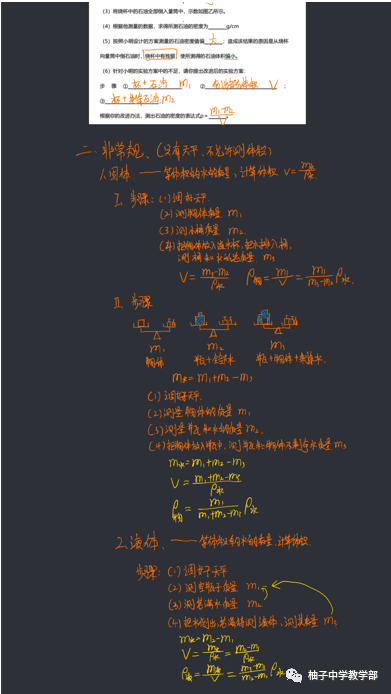 (3) 将烧杯中的石油全部倒入量筒中，示数如图乙所示。
(4) 根据他测量的数据，求得所测石油的密度为 g/cm
(5) 按照小明设计的方案测量的石油密度值偏 大 ；造成该结果的原因是从烧杯
向量筒中倒石油时，烧杯中有残留 使所测得的石油体积偏小。
(6) 针对小明的实验方案中的不足，请你提出改进后的实验方案：
步 骤 ① 杯+石油 m₁ ② V ；
③ 杯+剩余石油m₂
根据你的改进办法，测出石油的密度的表达式ρ= m₁-m₂/V
二、非常规、(只有天平、不允许测体积)
1.固体 —— 等体积的水的质量，计算体积 V=m水/ρ水
I. 步骤：(1) 调好天平
(2) 测物体质量 m₁
(3) 测小桶质量 m₂
(4) 把物体放入溢水杯，把水排入桶，
测桶和水的总质量 m₃
V=m₃-m₂/ρ水 ρ物=m₁/V=m₁/m₃-m₂ρ水
II. 步骤
m₁ m₂ m₃
物体
m水=m₁+m₂-m₃
(1) 调好天平
(2) 测量物体的质量 m₁
(3) 测量瓶和水的质量m₂
m水=m₁+m₂-m₃
V=m₁+m₂-m₃/ρ水
ρ物=m₁/m₁+m₂-m₃ρ水
2.液体、—— 等体积的水的质量，计算体积
步骤：(1) 调好天平
(2) 测空瓶子质量 m₁
(3) 测装满水质量 m₂
(4) 把水倒出，装满待测液体，测其质量 m₃
m水=m₂-m₁
V=m水/ρ水=m₂-m₁/ρ水
ρ液=m液/V=m₃-m₁/m₂-m₁ρ水
柚子中学教学部